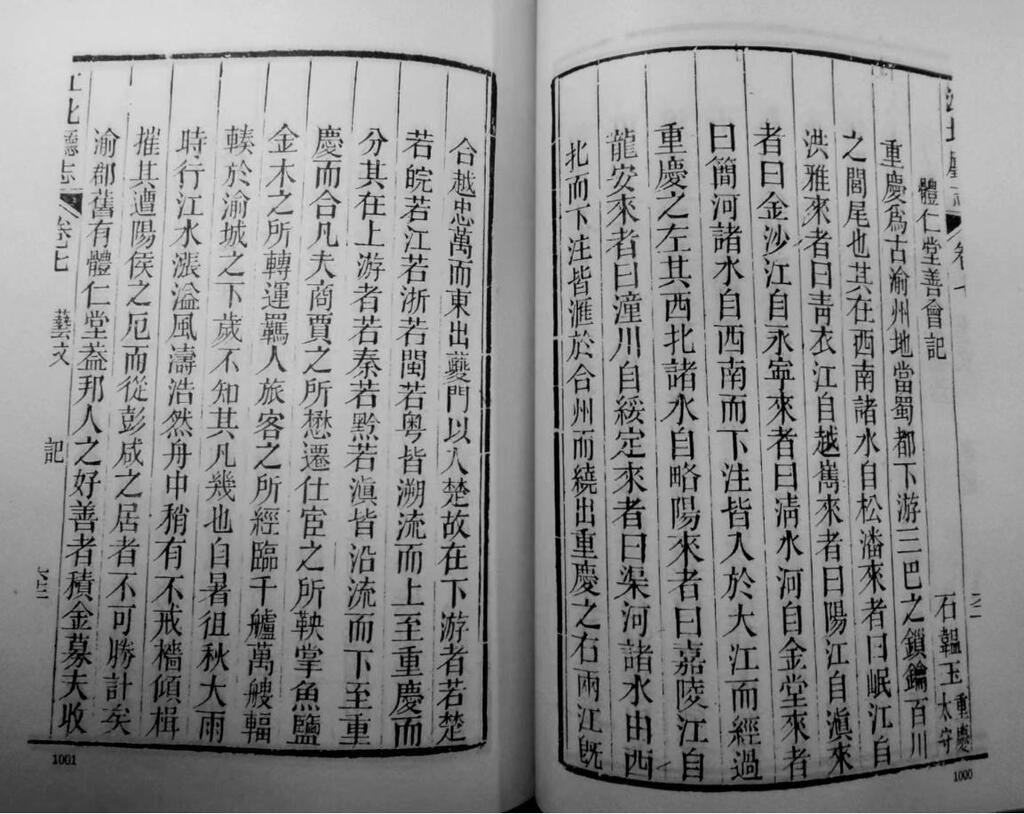 江北廳志 卷七
體仁堂善會記 石韞玉 重慶太守
重慶爲古渝州地當蜀郡下游三巴之鎖鑰百川
之閭尾也其在西南諸水自松潘來者曰岷江自
洪雅來者曰靑衣江自越嶲來者曰陽江自滇來
者曰金沙江自永寧來者曰淸水河自金堂來者
曰簡河諸水自西南而下注皆入於大江而經過
重慶之左其西北諸水自略陽來者曰嘉陵江自
龍安來者曰潼川自綏定來者曰渠河諸水由西
北而下注皆滙於合州而繞出重慶之右兩江旣
1000
合越忠萬而東出夔門以入楚故在下游者若楚
若皖若江若浙若閩若粤皆溯流而上至重慶而
分其在上游者若秦若黔若滇皆沿流而下至重
慶而合凡夫商賈之所懋遷仕宦之所鞅掌魚鹽
金木之所轉運羈人旅客之所經臨千艫萬艘輻
輳於渝城之下歲不知其凡幾也自暑徂秋大雨
時行江水漲溢風濤浩然舟中稍有不戒檣傾楫
摧其遭陽侯之厄而從彭咸之居者不可勝計矣
渝郡舊有體仁堂葢邦人之好善者積金募夫收
江北廳志 卷七 藝文 記 六二
1001